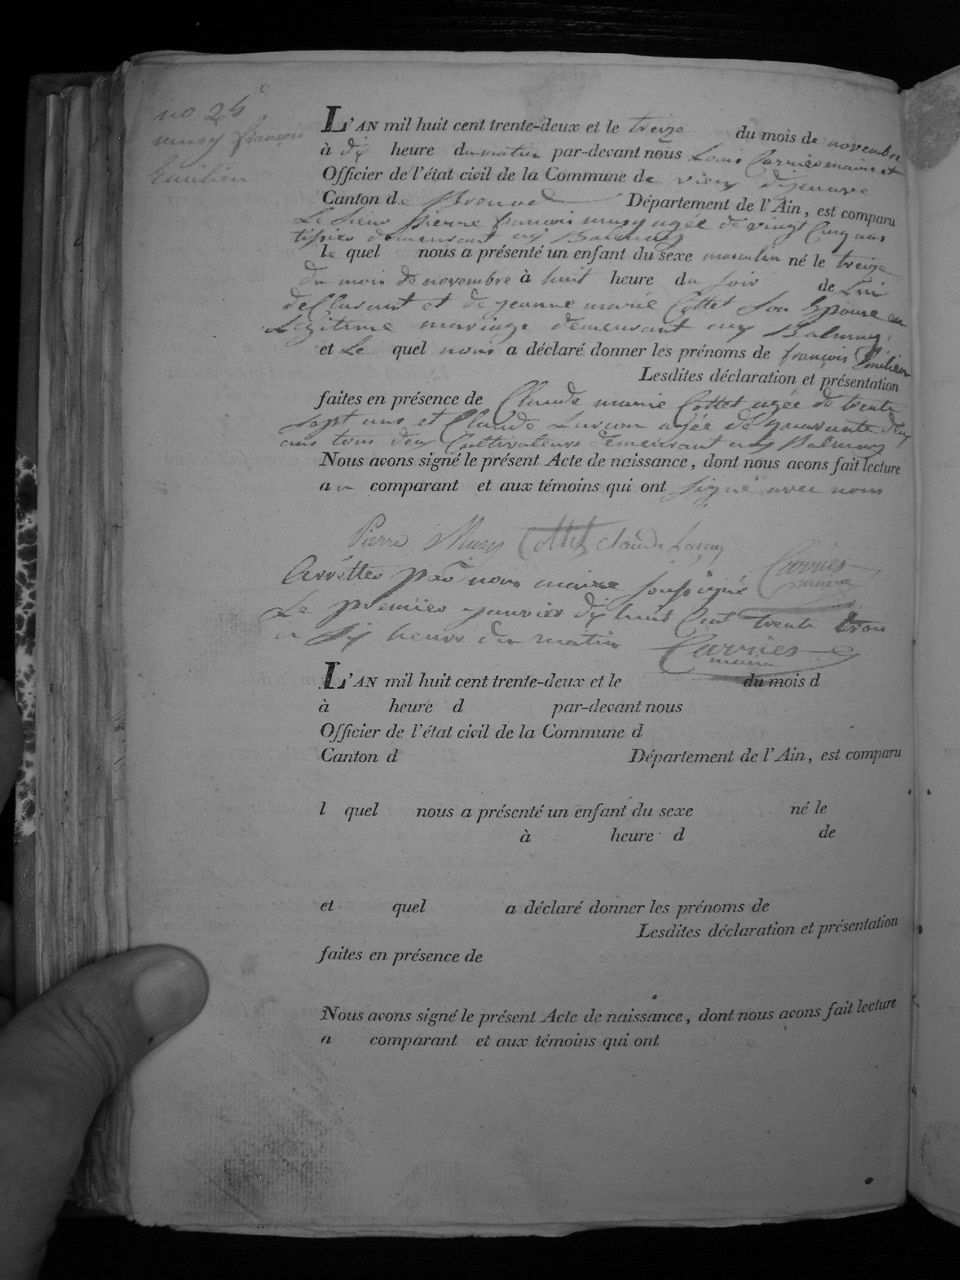 no 24e
musy françois
Emilien
L'AN mil huit cent trente-deux et le treize du mois de novembre
à dix heure du matin par-devant nous Louis Carrier maire et
Officier de l'état civil de la Commune de vieux d'izenave
Canton de Brenod Département de l'Ain, est comparu
Le sieur pierre françois musy agée de vingt cinq ans
demeurant au Balmay
le quel nous a présenté un enfant du sexe masculin né le treize
du mois de novembre à huit heure du soir de Lui
déClarant et de jeanne marie Cottet son Epouse en
Légitime mariage demeurant au Balmay
et Le quel nous a déclaré donner les prénoms de françois Emilien
Lesdites déclaration et présentation
faites en présence de Claude marie Cottet agée de trente
sept ans et Claude agée de quarante deux
ans tous deux Cultivateurs demeurant au Balmay
Nous avons signé le présent Acte de naissance, dont nous avons fait lecture
au comparant et aux témoins qui ont signé avec nous
Pierre Musy Cottet Claude Carrier
maire
Arrêttée par nous maire soussigné
Le premier janvier dix huit Cent trente trois
a six heures du matin Carrier
maire
L'AN mil huit cent trente-deux et le du mois d
à heure d par-devant nous
Officier de l'état civil de la Commune d
Canton d Département de l'Ain, est comparu
l quel nous a présenté un enfant du sexe né le
à heure d de
et quel a déclaré donner les prénoms de
Lesdites déclaration et présentation
faites en présence de
Nous avons signé le présent Acte de naissance, dont nous avons fait lecture
a comparant et aux témoins qui ont